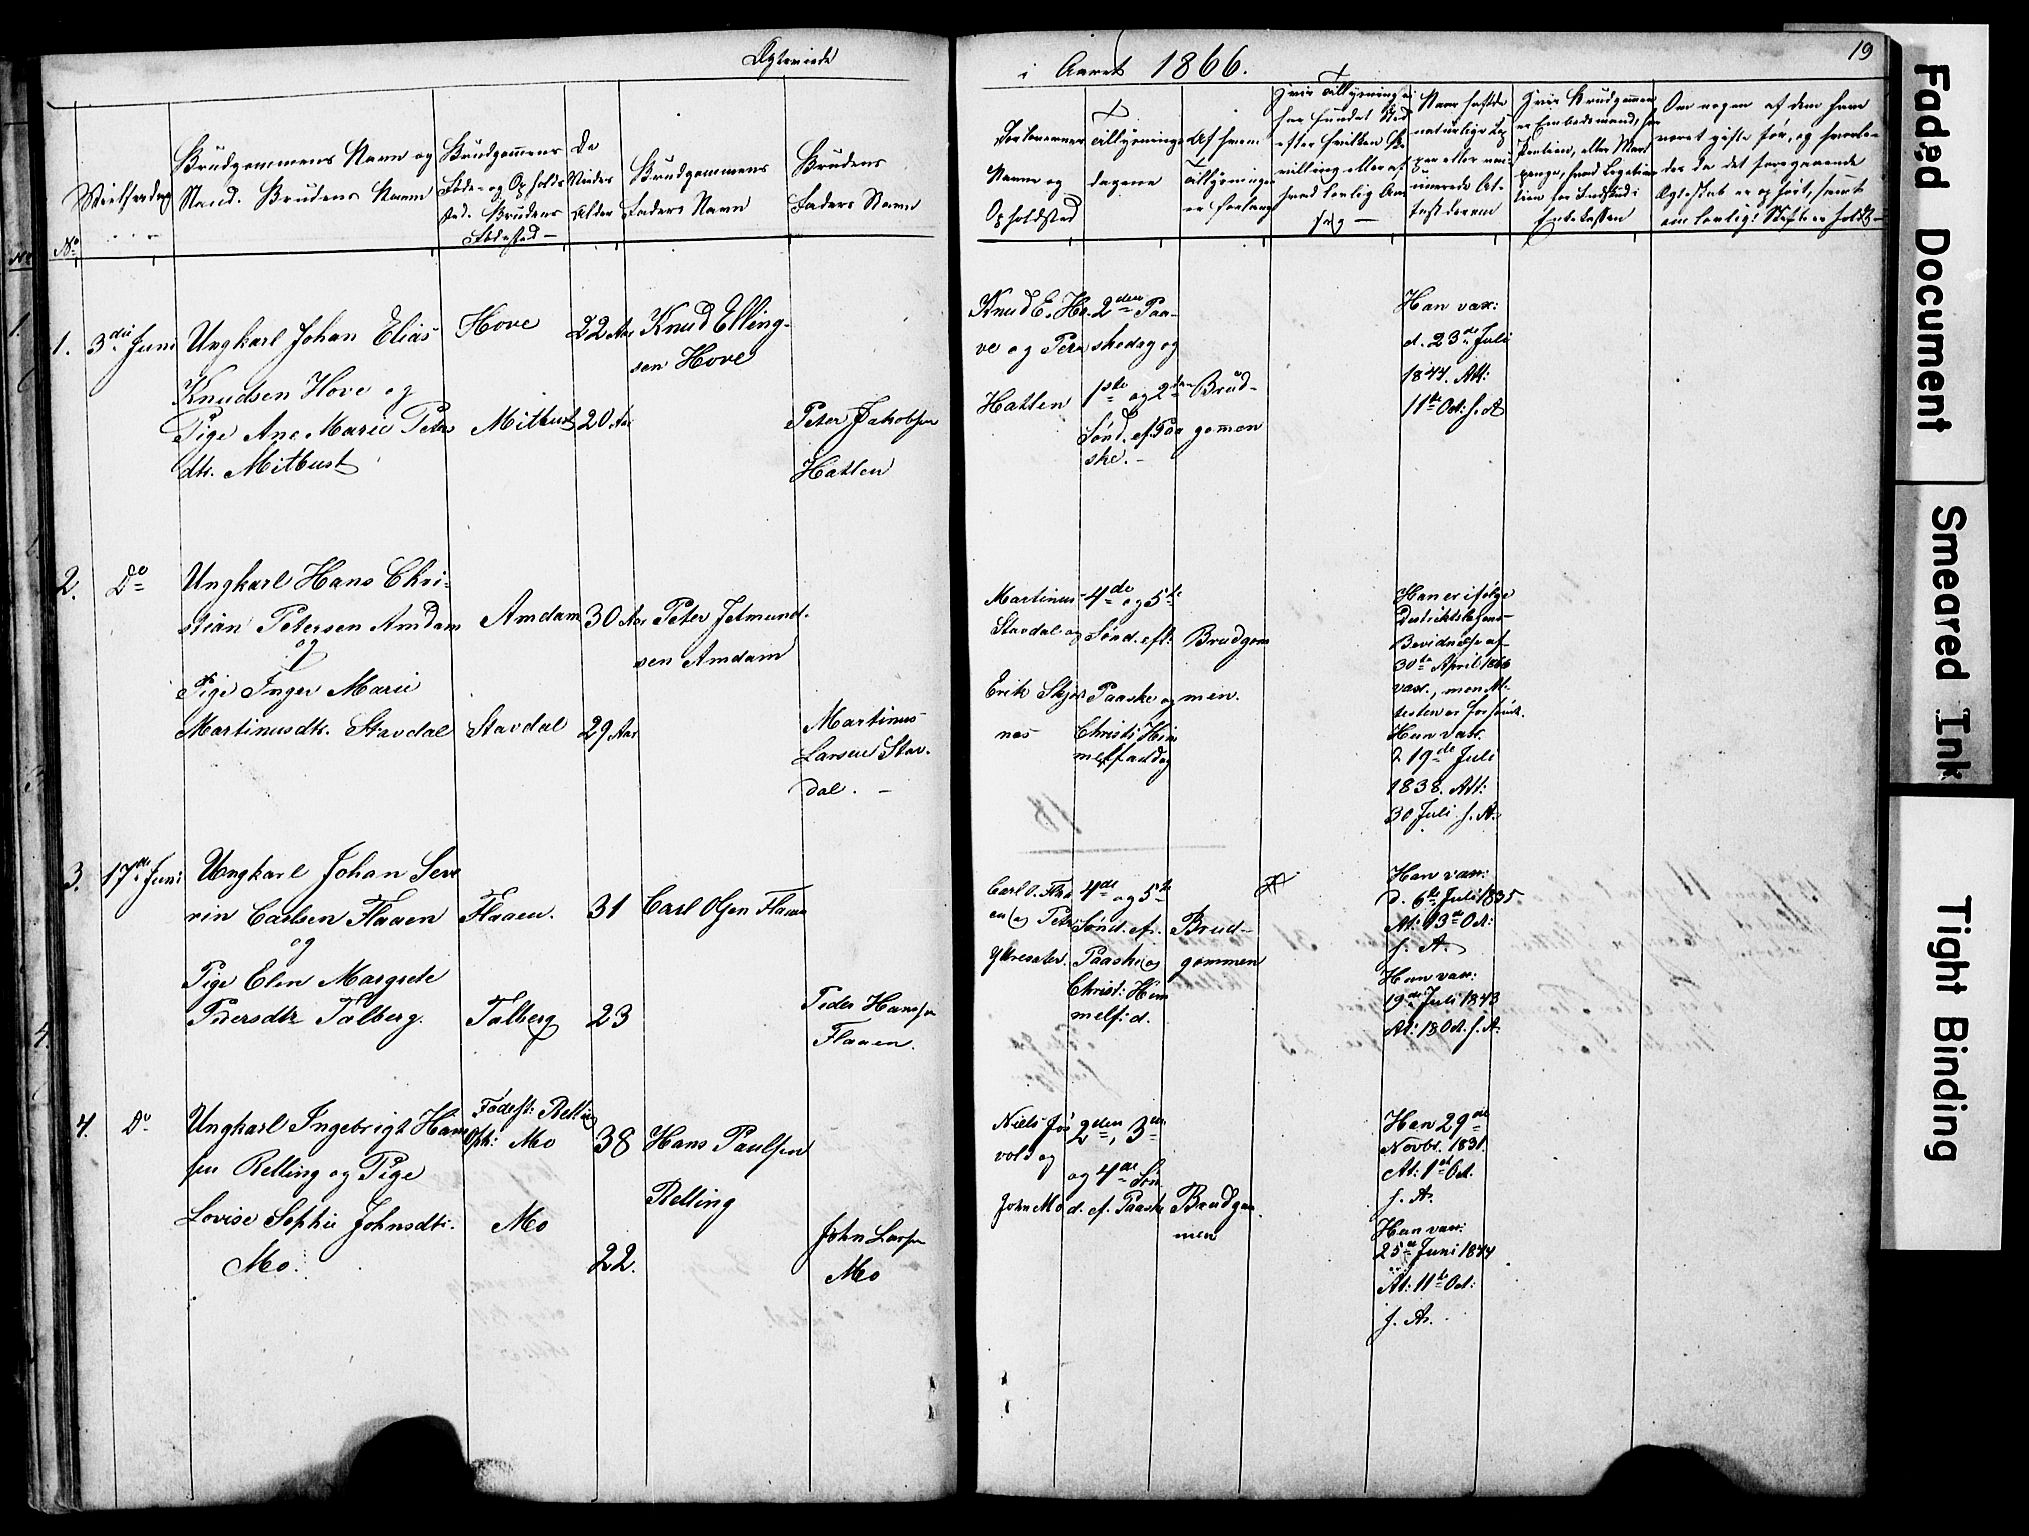 Ægteviede
i Aaret 1866.
19
No
Vielsesdag
Brudgommens Navn og
Stand. Brudens Navn
Brudgomens
Føde- og Opholds
sted. Brudens
Fødested
De
Viedes
Alder
Brudgommens
Faders Navn
Brudens
Faders Navn
Forlovernes
Navne og
Opholdsted
Tillysnings
dagene
Af hvem
Tillysningen
er forlangt
1.
3die Juni
Ungkarl Johan Elias
Knudsen Hove og
Pige Ane Marie Peters
dtr. Mitbust
Hove
Mitbust
22 Aar
20 Aar
Knud Elling-
sen Hove
Peter Jakobsen
Hatlen
Knud E. Ho-
ve og Peter
Hatlen
2den Paa-
skedag og
1ste og 2den
Sønd. ef. Paa
ske. -
Brud-
gomen
Hun vax:
d. 23de Juli
1847. Att:
11te Oct: s. A
2.
Do
Ungkarl Hans Chri-
stian Petersen Amdam
og
Pige Inger Marie
Martinusdtr. Stavdal
Amdam
Stavdal
30 Aar
29 Aar
Peter Jetmund-
sen Amdam
Martinus
Larsen Stav-
dal. -
Martinus
Stavdal og
Erik Skjør
nes
4de og 5te
Sønd. eft.
Paaske og
Christi Him
melfartdag
Brudgom
men.
Han er ifølge
Destriktslægens
Bevidnelse af
30te April 1866
vax., men At-
testen er forsvüd.
Hun vax.
d 19de Juli
1838. Att:
30 Juli s. A.
3.
17de Juni
Ungkarl Johan Seve
rin Carlsen Flaaen
og
Pige Elen Margrete
Pedersdtr Talberg.
Flaaen.
Talberg
31
23
Carl Olsen Flaaen
Peder Hansen
Flaaen.
Carl O. Flaa
en og Peter
4de og 5te
Sønd. ef.
Paaske og
Christ: Him
melf: d.
Brud-
gommen
Han vax:
d. 6te Juli 1835.
At: 13de Oct:
s. A.
Hun vax:
19de Juli 1843
At: 18 Oct. s. A.
4.
Do
Ungkarl Ingebrigt Han
sen Relling og Pige
Lovise Sophie Johnsdtr.
Mo.
Fødest: Relling
Oph: Mo
Mo
38
22.
Hans Paulsen
Relling
John Larsen
Mo
Niels Jør
vold og
John Mo
2den, 3die
og 4de Søn
d. ef. Paaske
Brudgom
men
Han 29de
Novbr. 1831.
At: 1st Oct.
s. A.
Hun vax:
25de Juni 1844
At: 11te Oct:
s. A.
Faded Document
Smeared Ink
Tight Binding